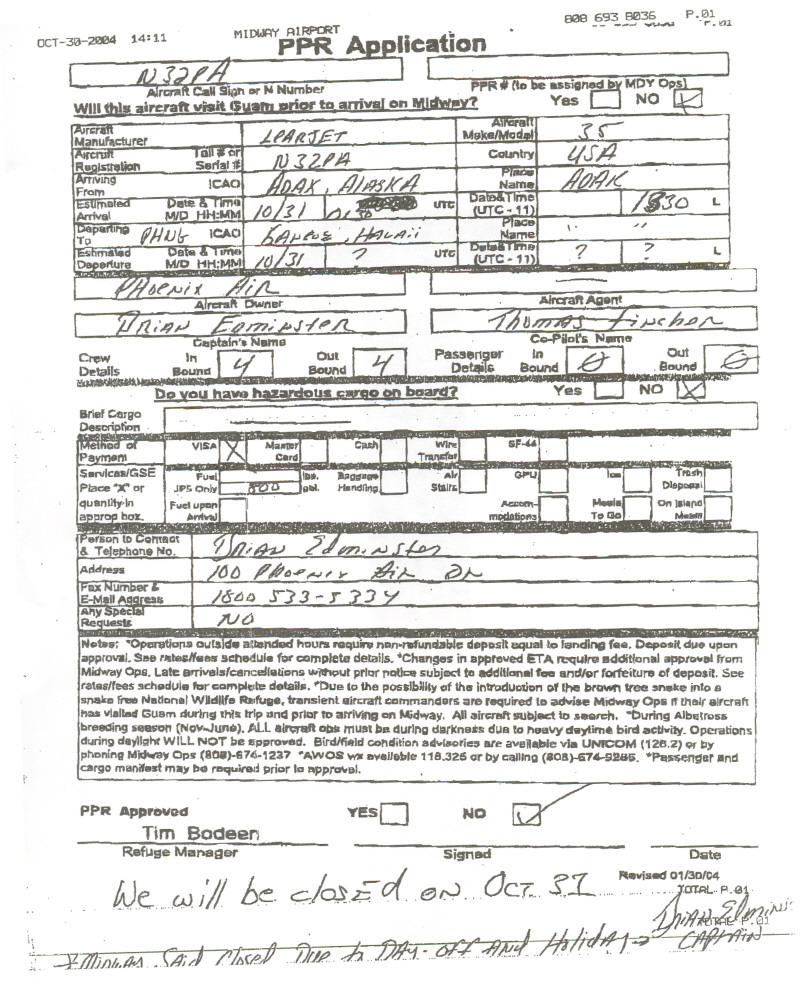 OCT-30-2004 14:11 MIDWAY AIRPORT 808 693 8036 P.01
P.01
PPR Application
N32PA
Aircraft Call Sign or N Number PPR # (to be assigned by MDY Ops)
Will this aircraft visit Guam prior to arrival on Midway? Yes NO
Aircraft Manufacturer LEARJET Aircraft Make/Model 35
Aircraft Registration Tail # or Serial # N32PA Country USA
Arriving From ICAO ADAK, ALASKA Place Name ADAK
Estimated Arrival Date & Time M/D HH:MM 10/31 UTC Date&Time (UTC - 11) 1830 L
Departing To PHNG ICAO KANEOE, HAWAII Place Name " "
Estimated Departure Date & Time M/D HH:MM 10/31 ? UTC Date&Time (UTC - 11) ? ? L
PHOENIX AIR
Aircraft Owner Aircraft Agent
BRIAN EDMINSTER Thomas Fincher
Captain's Name Co-Pilot's Name
Crew Details In Bound 4 Out Bound 4 Passenger Details In Bound 0 Out Bound 0
Do you have hazardous cargo on board? Yes NO X
Brief Cargo Description
Method of Payment VISA X Master Card Cash Wire Transfer SF-44
Services/GSE Fuel JP5 Only 800 lbs. gal. Baggage Handling Air Stairs GPU Ice Trash Disposal
Place "X" or quantity in approp box. Fuel upon Arrival Accommodations Meals To Go On Island Meals
Person to Contact & Telephone No. BRIAN EDMINSTER
Address 100 PHOENIX AIR DR
Fax Number & E-Mail Address 1800 533-5334
Any Special Requests NO
Notes: *Operations outside attended hours require non-refundable deposit equal to landing fee. Deposit due upon
approval. See rates/fees schedule for complete details. *Changes in approved ETA require additional approval from
Midway Ops. Late arrivals/cancellations without prior notice subject to additional fee and/or forfeiture of deposit. See
rates/fees schedule for complete details. *Due to the possibility of the introduction of the brown tree snake into a
snake free National Wildlife Refuge, transient aircraft commanders are required to advise Midway Ops if their aircraft
has visited Guam during this trip and prior to arriving on Midway. All aircraft subject to search. *During Albatross
breeding season (Nov-June), ALL aircraft ops must be during darkness due to heavy daytime bird activity. Operations
during daylight WILL NOT be approved. Bird/field condition advisories are available via UNICOM (126.2) or by
phoning Midway Ops (808)-674-1237 *AWOS wx available 118.325 or by calling (808)-674-9286. *Passenger and
cargo manifest may be required prior to approval.
PPR Approved YES NO
Tim Bodeen
Refuge Manager Signed Date
Revised 01/30/04
TOTAL P.01
We will be closed on Oct 31
TOTAL P.01
Brian Edminster
CAPTAIN
* Midway Said Closed Due to DAY-OFF AND Holiday